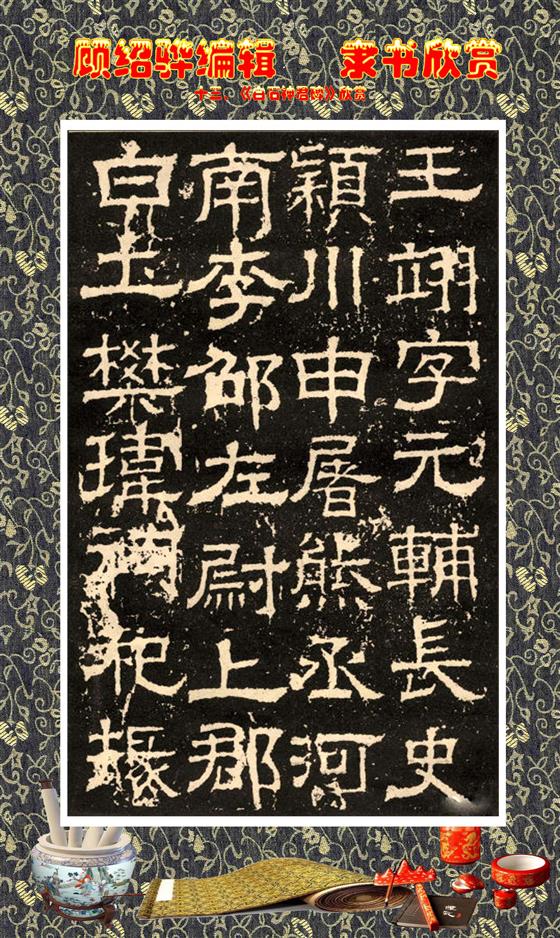 顾绍骅编辑 隶书欣赏
十三、《白石神君碑》欣赏
王翊字元輔長史
穎川申屠熊丞河
南李邵左尉上郡
白土樊瑋祠祀掾